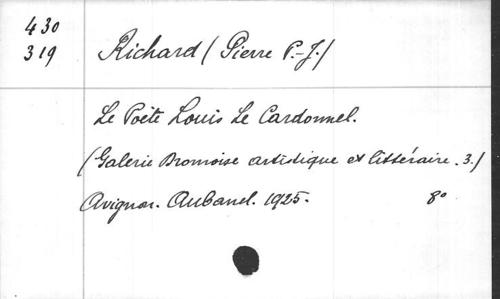 430
319
Richard (Pierre P.-J.)
Le Poète Louis Le Cardonnel.
(Galerie Dromoise artistique et littéraire. 3.)
Avignon. Aubanel. 1925. 8°